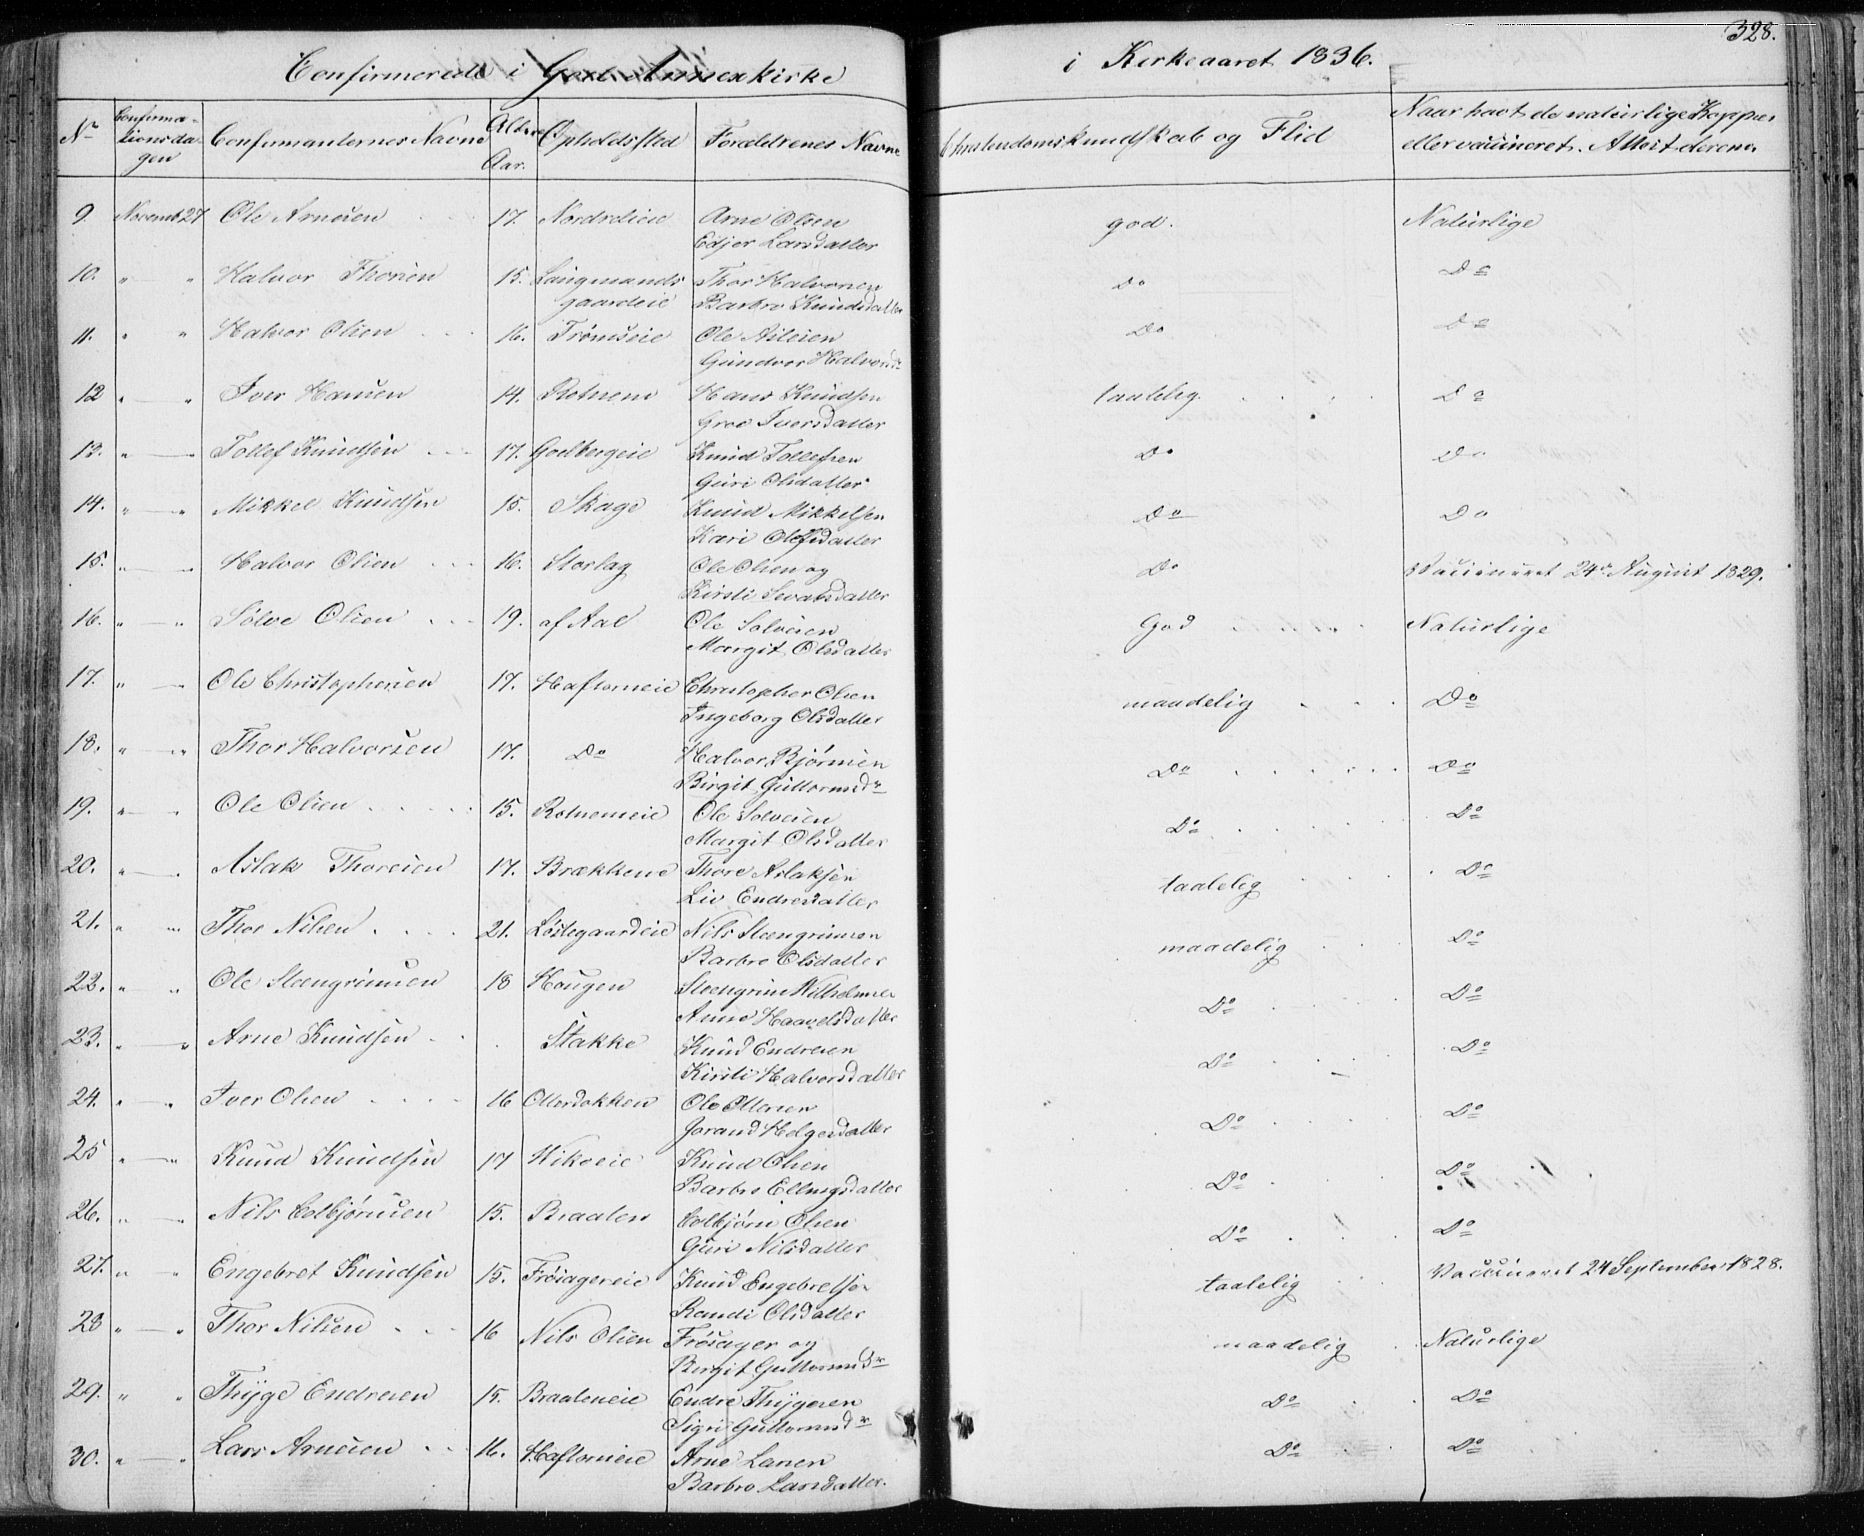 328.
Confirmerede i Annexkirke i Kirkeaaret 1836.
No Confirma-tionsdagen Confirmanternes Navne Alder Aar. Opholdssted Forældrenes Navne Christendomskundskab og Flid Naar havt de naturlige Kopper eller vaccineret. Attest derom.
9. Novemb 27 Ole Arnesen 17. Nordreieie Arne Olsen god. Naturlige
Larsdatter
10. " " Halvor Thorsen 15. Langmands Thor Halvorsen Do Do
gaardeie Barbro Knudsdatter
11. " " Halvor Olsen 16. Ole Do Do
Gundvor Halvorsdr
12 " " Iver Hansen 14. Rotnem Hans Knudsen taalelig Do
Groe Iversdatter
13. " " Tollef Knudsen 17. Golbergeie Knud Tollefsen Do Do
Guri Olsdatter
14. " " Mikkel Knudsen 15. Skage Knud Mikkelsen Do Do
Kari Olefsdatter
15. " " Halvor Olsen 16. Storlag Ole Olsen og Do Vaccineret 24de August 1829.
Kirsti Sevatsdatter
16. " " Sølve Olsen 19. af Aal Ole Solvesen God Naturlige
Margit Olsdatter
17. " " Ole Christophersen 17. Haftorneie Christopher Olsen maadelig Do
Ingeborg Olsdatter
18. " " Thor Halvorsen 17. Do Halvor Bjørnsen Do Do
Birgit Guttormsdr
19. " " Ole Olsen 15. Rotnemeie Ole Solvesen Do Do
Margit Olsdatter
20. " " Aslak Thoresen 17. Brækkene Thore Aslaksen taalelig Do
Liv Endresdatter
21. " " Thor Nilsen 21. Løstegaardeie Nils Steengrimsen maadelig Do
Barbro Olsdatter
22. " " Ole Steengrimsen 18 Haugen Steengrim Wilhelmsen Do Do
Anne Haavelsdatter
23. " " Arne Knudsen Stakke Knud Endresen Do Do
Kirsti Halvorsdatter
24. " " Iver Olsen 16 Ollerdokken Ole Do Do
Jorand Helgesdatter
25 " " Knud Knudsen 17 Knud Olsen Do Do
Barbro Ellingsdatter
26. " " Nils Colbjørnsen 15. Braaten Colbjørn Olsen Do Do
Guri Nilsdatter
27. " " Engebret Knudsen 15. Frøsagereie Knud Engebretsen taalelig Vaccineret 24 September 1828.
Randi Olsdatter
28 " " Thor Nilsen 16 Nils Olsen Frøsager og maadelig Naturlige
Birgit Guttormsdr
29. " " Thyge Endresen 15. Braateneie Endre Thygesen Do Do
Sigri Guttormsdr
30. " " Lars Arnesen 16. Haftorneie Arne Larsen Do Do
Barbro Larsdatter.